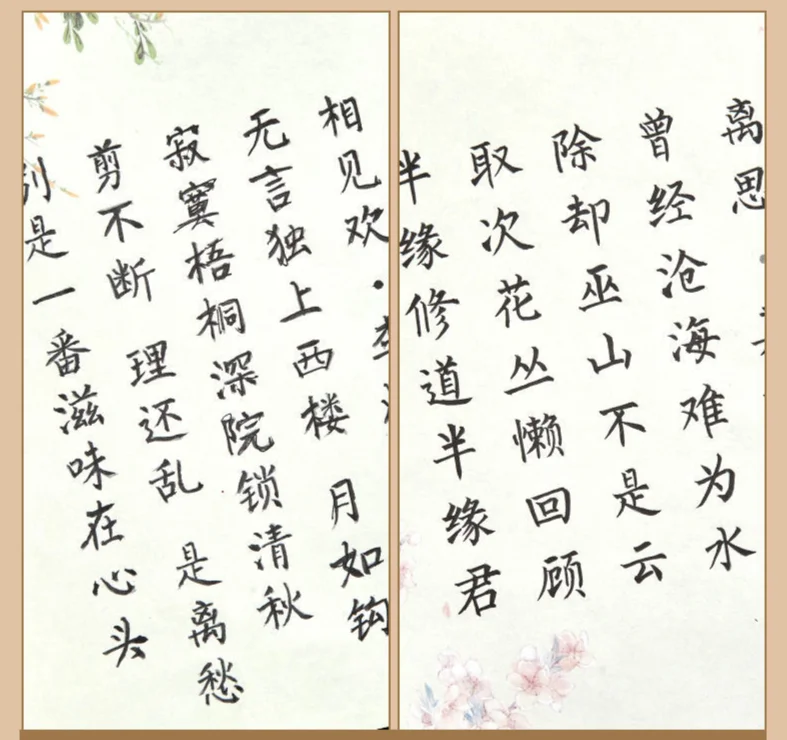 相见欢·
无言独上西楼 月如钩
寂寞梧桐深院锁清秋
剪不断 理还乱 是离愁
别是一番滋味在心头
离思
曾经沧海难为水
除却巫山不是云
取次花丛懒回顾
半缘修道半缘君